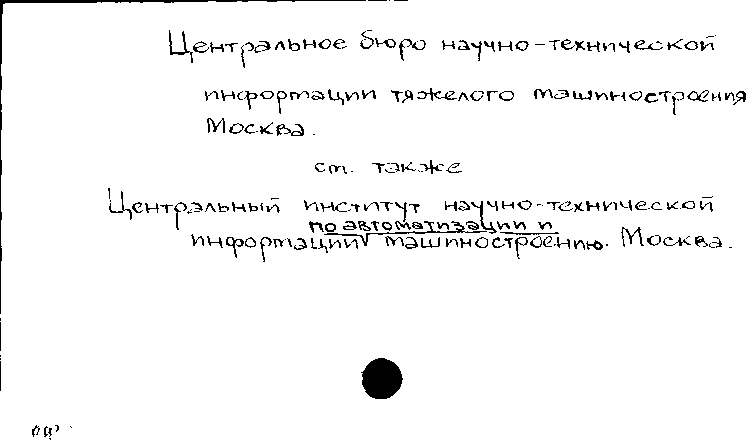 Центральное бюро научно-технической
информации тяжелого машиностроения
Москва.
см. также
Центральный институт научно-технической
по автоматизации и
информации машиностроению. Москва.